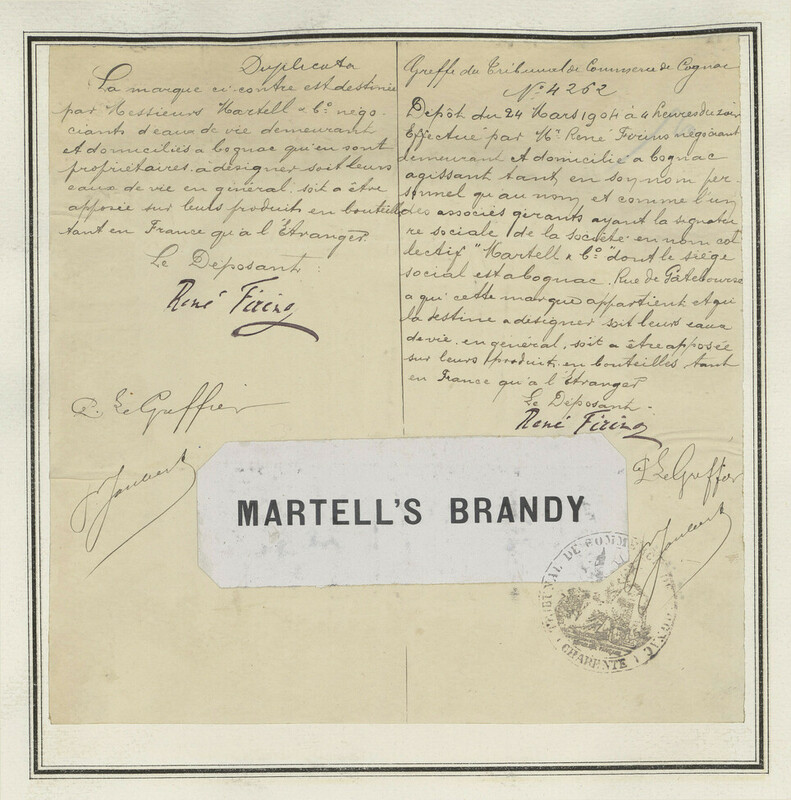 Duplicata
La marque ci-contre est destinée
par Messieurs Martell & Co négo-
ciants d'eaux de vie demeurant
et domiciliés à Cognac qui en sont
propriétaires, à désigner soit leurs
eaux de vie en général, soit à être
apposée sur leurs produits en bouteilles
tant en France qu'à l'Étranger.
Le Déposant :
René Firino
P. Le Greffier
Joubert
Greffe du Tribunal de Commerce de Cognac
No 4262
Dépôt du 24 Mars 1904 à 4 heures du soir
Effectué par Mr René Firino négociant
demeurant et domicilié à Cognac
agissant tant en son nom per-
sonnel qu'au nom et comme l'un
des associés gérants ayant la signatu-
re sociale de la société en nom col-
lectif "Martell & Co" dont le siège
social est à Cognac, Rue de Gâtebourse
à qui cette marque appartient et qui
la destine à désigner soit leurs eaux
de vie en général, soit à être apposée
sur leurs produits en bouteilles tant
en France qu'à l'Étranger
Le Déposant.
René Firino
P. Le Greffier
Joubert
MARTELL'S BRANDY
TRIBUNAL DE COMMERCE DE COGNAC
CHARENTE